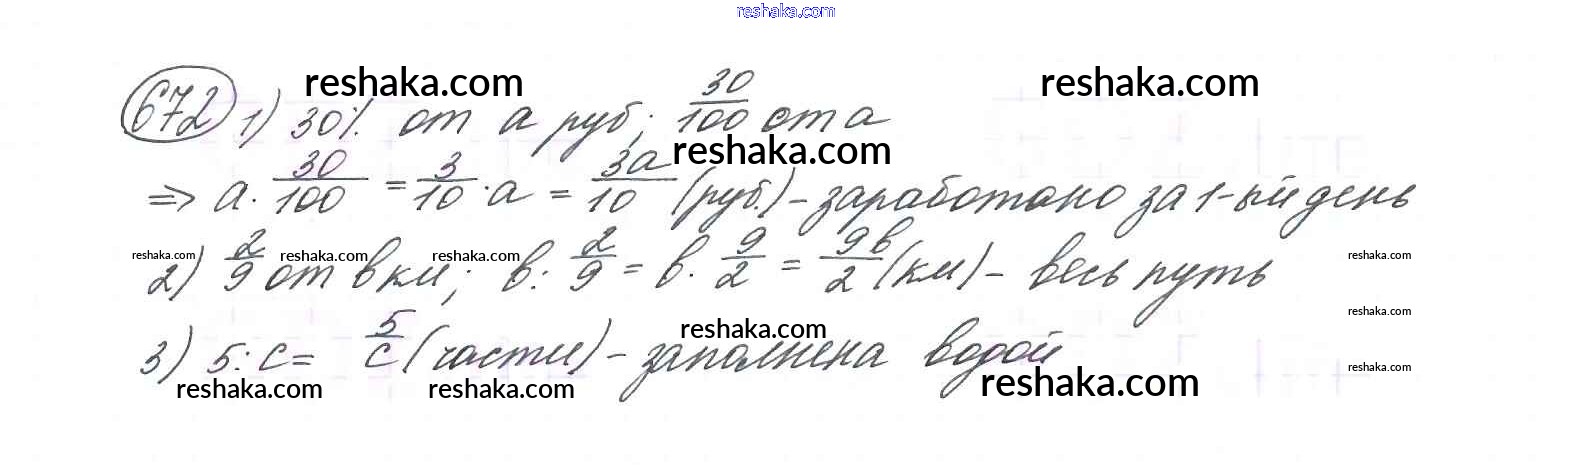 reshaka.com
672 1) 30% от а руб; 30/100 от а
reshaka.com reshaka.com
reshaka.com
=> а · 30/100 = 3/10 · а = 3а/10 (руб.) – заработано за 1-ый день
reshaka.com reshaka.com reshaka.com reshaka.com
2) 2/9 от в км; в : 2/9 = в · 9/2 = 9в/2 (км) – весь путь
reshaka.com
reshaka.com
3) 5 : с = 5/с (части) – заполнена водой
reshaka.com
reshaka.com reshaka.com reshaka.com